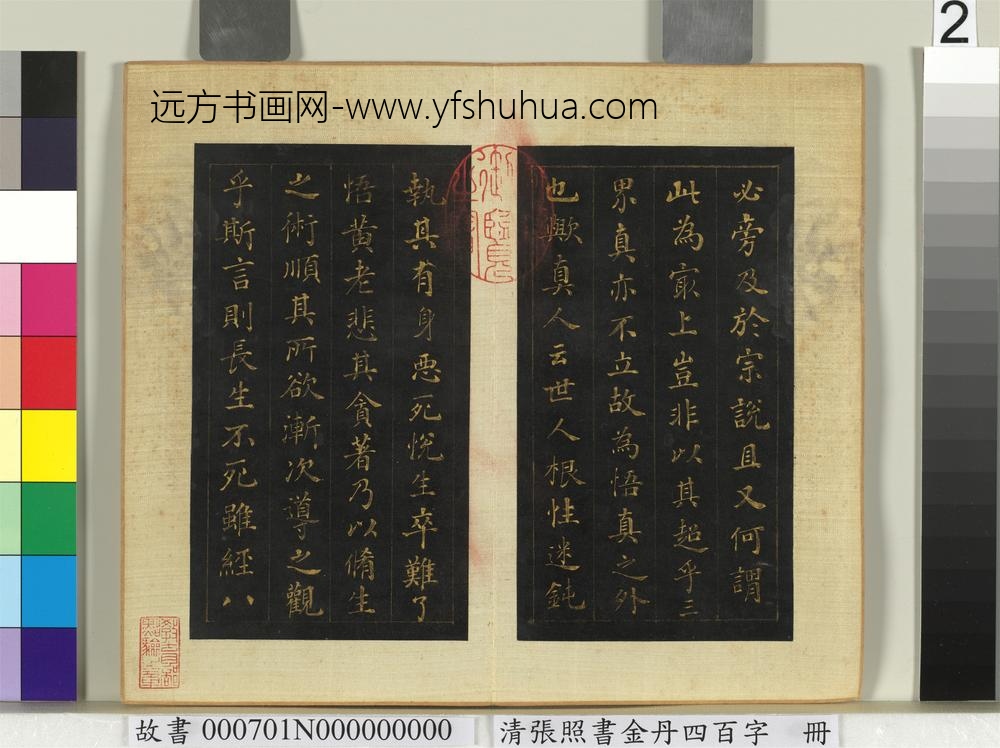 2
远方书画网-www.yfshuhua.com
必旁及於宗說且又何謂
此為冣上豈非以其超乎三
界真亦不立故為悟真之外
也歟真人云世人根性迷鈍
執其有身惡死悅生卒難了
悟黃老悲其貪著乃以脩生
之術順其所欲漸次導之觀
乎斯言則長生不死雖經八
御覽
故書 000701N000000000
清張照書金丹四百字 冊